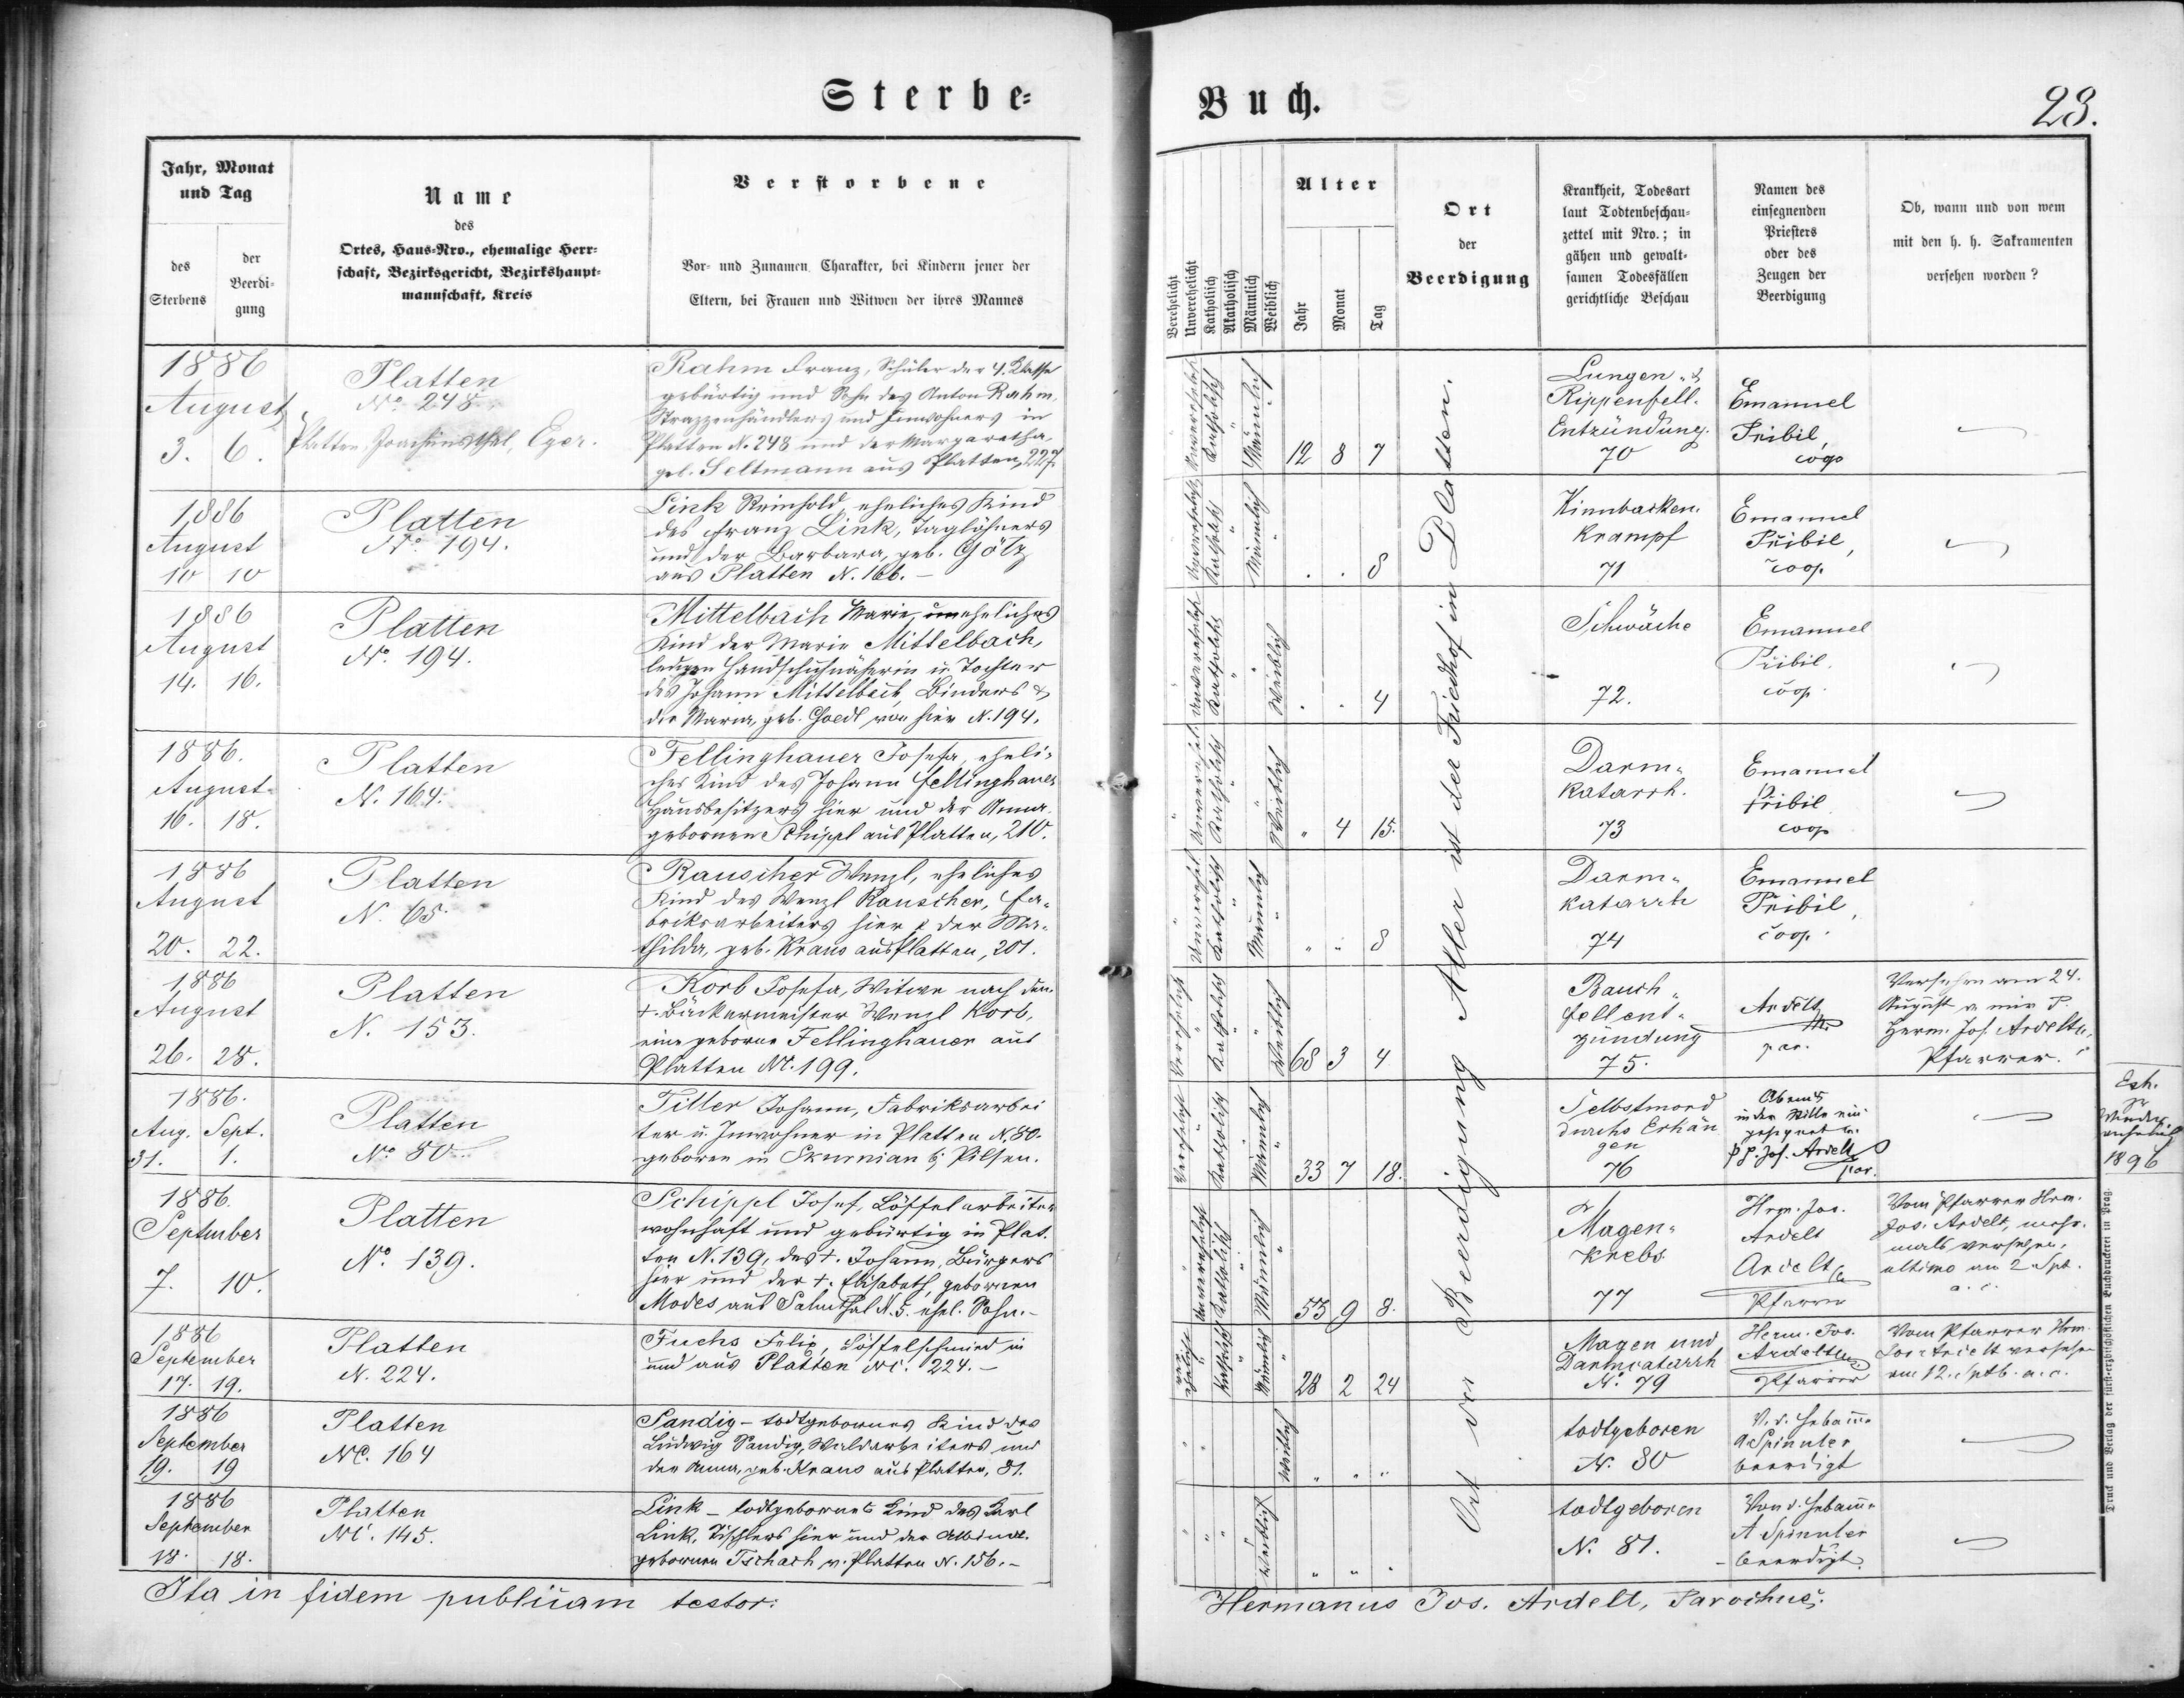 Sterbe-
Jahr, Monat
und Tag
des
Sterbens
der
Beerdi-
gung
Name
des
Ortes, Haus-Nro., ehemalige Herr-
schaft, Bezirksgericht, Bezirkshaupt-
mannschaft, Kreis
Verstorbene
Vor- und Zunamen, Charakter, bei Kindern jener der
Eltern, bei Frauen und Witwen der ihres Mannes
1886
August
3. 6.
Platten
No. 248
Platten, Joachimsthal, Eger.
Rahm Franz, Schüler der 4. Klasse
gebürtig und Sohn des Anton Rahm,
und Inwohners in
Platten N. 248 und der Margaretha,
geb. Seltmann aus Platten, 227.
1886
August
10 10
Platten
No. 194.
Link Reinhold, eheliches Kind
des Franz Link, Taglöhners
und der Barbara, geb. Götz
aus Platten N. 166. –
1886
August
14. 16.
Platten
No. 194.
Mittelbach Marie, uneheliches
Kind der Marie Mittelbach,
ledigen Handschuhnäherin u. Tochter
des Johann Mittelbach, Binders &
der Maria, geb. von hier N. 194.
1886.
August
16. 18.
Platten
N. 164.
Fellinghauer Josefa, eheli-
ches Kind des Johann Fellinghauer
Hausbesitzers hier und der Anna
gebornen Schippl aus Platten, 210.
1886
August
20. 22.
Platten
N. 65.
Rauscher Wenzl, eheliches
Kind des Wenzl Rauscher, Fa-
briksarbeiters hier & der Ma-
thilda, geb. Kraus aus Platten, 201.
1886
August
26. 28.
Platten
N. 153.
Korb Josefa, Witwe nach dem
+. Bäckermeister Wenzl Korb,
eine geborne Fellinghauer aus
Platten NC. 199.
1886.
Aug. Sept.
31. 1.
Platten
No 80.
Tiller Johann, Fabriksarbei
ter u. Inwohner in Platten N. 80.
geboren in Skurnian b. Pilsen.
1886.
September
7. 10.
Platten
No. 139.
Schippl Josef, Löffelarbeiter
wohnhaft und gebürtig in Plat-
ten N. 139, des +. Johann, Bürgers
hier und der +. Elisabeth, gebornen
Modes aus N. 5. ehel. Sohn. –
1886
September
17. 19.
Platten
N. 224.
Fuchs Felix, Löffelschmied in
und aus Platten NC. 224. –
1886
September
19. 19
Platten
NC. 164
Sandig – todtgebornes Kind des
Ludwig Sandig, Waldarbeiters und
der Anna, geb. Kraus aus Platten, 81.
1886
September
18. 18.
Platten
NC. 145.
Link – todtgebornes Kind des Karl
Link, Tischlers hier und der Albina
gebornen Tschach v. Platten N. 156. –
Ita in fidem publicam testor:
Buch.
23.
Verehelicht
Unverehelicht
Katholisch
Akatholisch
Männlich
Weiblich
Alter
Jahr
Monat
Tag
Ort
der
Beerdigung
Krankheit, Todesart
laut Todtenbeschau-
zettel mit Nro.; in
gähen und gewalt-
samen Todesfällen
gerichtliche Beschau
Namen des
einsegnenden
Priesters
oder des
Zeugen der
Beerdigung
Ob, wann und von wem
mit den h. h. Sakramenten
versehen worden?
Ort der Beerdigung Aller ist der Friedhof in Platten.
Unverehelicht
Katholisch
Männlich
12 8 7
Lungen- &
Rippenfell-
Entzündung.
70
Emanuel
Pribil,
coop
Unverehelicht
Katholisch
Männlich
. . 8
Kinnbacken-
krampf
71
Emanuel
Přibil,
coop.
Unverehelicht
Katholisch
Weiblich
. . 4
Schwäche
72.
Emanuel
Přibil.
coop.
Unverehelicht
Katholisch
Weiblich
" 4 15.
Darm-
katarrh.
73
Emanuel
Přibil
coop
Unverehelicht
Katholisch
Männlich
" " 8
Darm-
katarrh
74
Emanuel
Přibil,
coop.
Verehelicht
Katholisch
Weiblich
68 3 4
Bauch-
fellent-
zündung
75.
Ardelt
par.
Versehen am 24.
August v. mir P.
Herm. Jos. Ardelt,
Pfarrer.
Verehelicht
Katholisch
Männlich
33 7 18.
Selbstmord
durchs Erhän
gen
76
Abends
in der Stille ein-
gesegnet v.
P. Jos. Ardelt
par.
1896
Unverehelicht
Katholisch
Männlich
53 9 8.
Magen-
krebs
77
Hrm. Jos.
Ardelt
Ardelt
Pfarrer
Vom Pfarrer Hrm.
Jos. Ardelt, mehr-
mals versehen,
ultimo am 2 Spt.
a. c.
Verehelicht
Katholisch
Männlich
28 2 24
Magen und
Darmcatarrh
N. 79
Herm. Jos.
Ardelt
Pfarrer
Vom Pfarrer Hrm.
Jos. Ardelt versehen
am 12. Sptb. a. c.
Weiblich
" " "
todtgeboren
N. 80
V. d. Hebamme
A. Spinnler
beerdigt
Weiblich
" " "
todtgeboren
N. 81.
Von d. Hebamme
A Spinnler
beerdigt
Druck und Verlag der fürst-erzbischöflichen Buchdruckerei in Prag.
Hermanus Jos. Ardelt, Parochus.